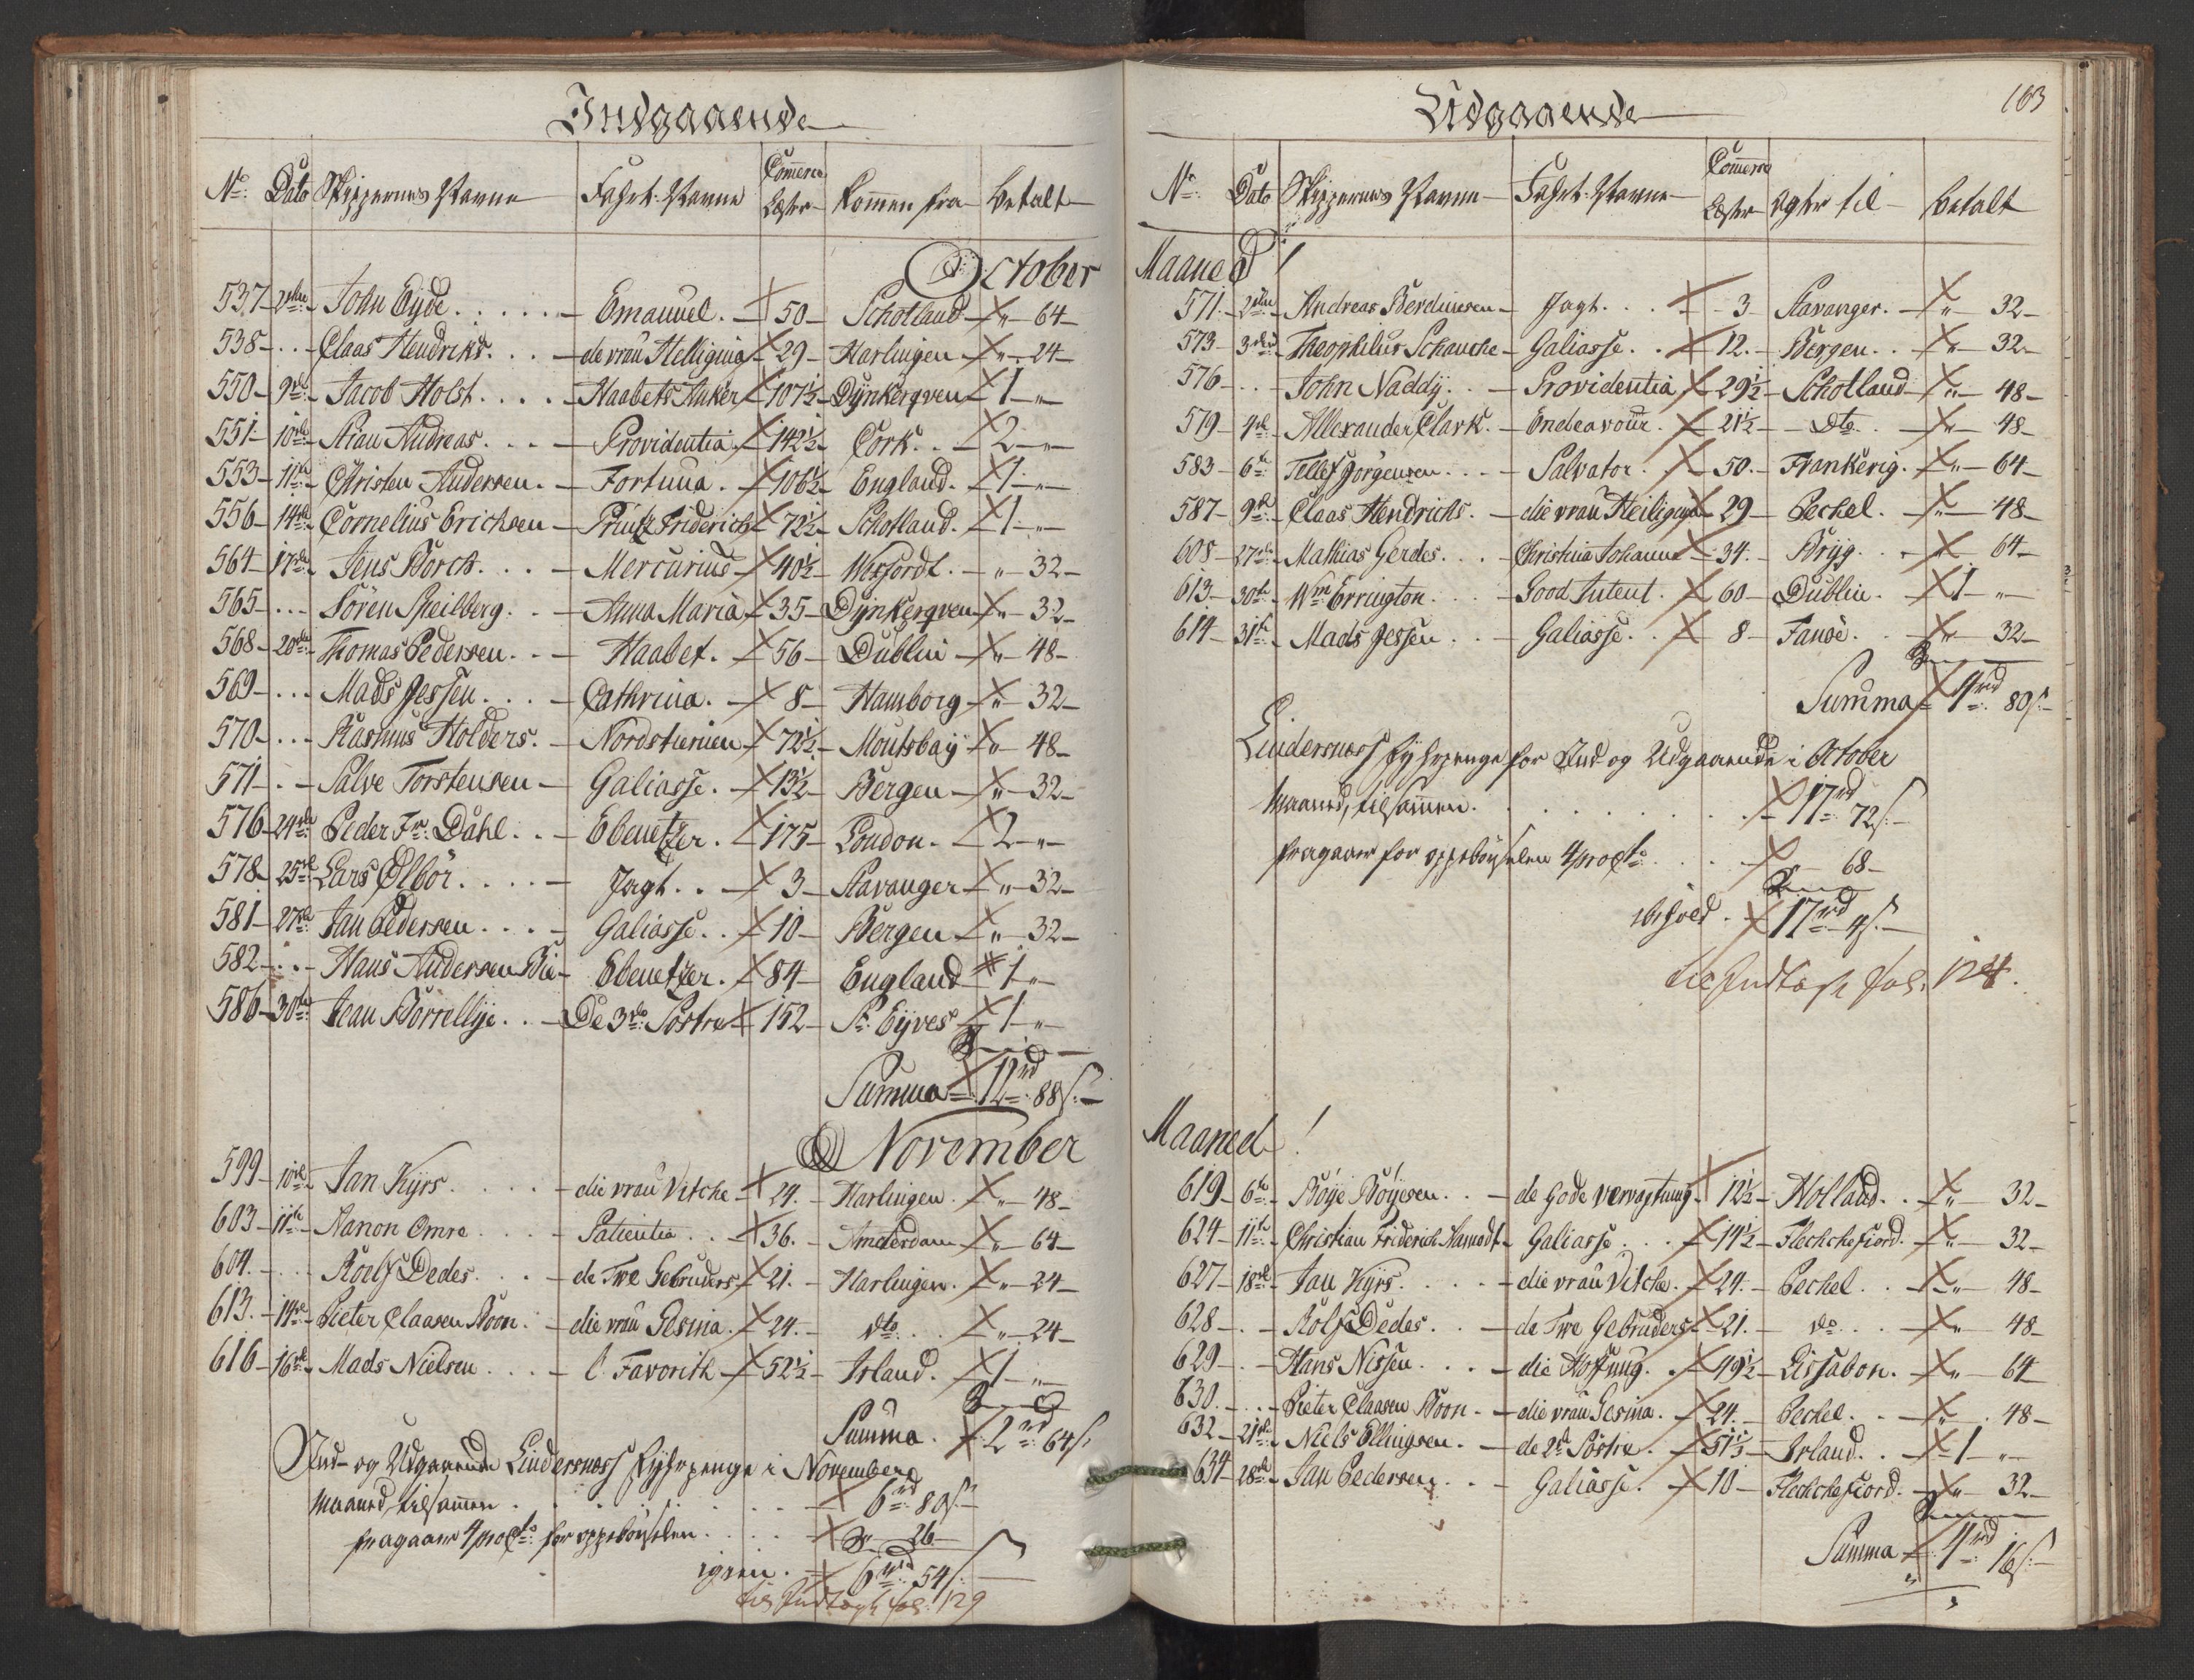 Indgaaende
No: Dato Skippernes Navne Fahrt: Navne Commerce Læster Kommen fra betalt
October
537 2den John Eyde Emanuel 50 Schotland " 64
538 Claas Hendriks de vrau Helligina 29 Harlingen " 24
550 9de Jacob Holst Haabets Anker 107½ Dynkerqven 1 "
551 10de Andreas Providentia 142½ Cork 2 "
553 11te Christen Andersen Fortuna 106½ England 1 "
556 14de Cornelius Erichsen Printz Friderich 72½ Schotland 1 "
564 17de Jens Borch Mercurius 40½ Wexfordt " 32
565 Sören Speilberg Anna Maria 35 Dynkerqven " 32
568 20de Thomas Pedersen Haabet 56 Dublin " 48
569 Mads Jessen Cathrina 8 Hamborg " 32
570 Rasmus Holders Nordstiernen 72½ Moutsbay " 48
571 Salve Torstensen Galiasse 13½ Bergen " 32
576 24de Peder Fr: Dahl Ebenetzer 175 London 2 "
578 25de Lars Ölbör Jagt 3 Stavanger " 32
581 27de Jan Pedersen Galiasse 10 Bergen " 32
582 Hans Andersen Bie Ebenetzer 84 England 1 "
586 30te Jean Borrellye De 3de Söstre 152 St: Eyves 1 "
Summa 12rd 88s:
November
599 10de Jan Kyrs die vrau Vitche 24 Harlingen " 48
603 11te Nanon Omre Patientia 36 Amsterdam " 64
604 Roelf Dedes de Twe Gebruders 21 Harlingen " 24
613 14de Pieter Claasen Boon die vrau Gesina 24 dto " 24
616 16de Mads Nielsen l' Favorith 52½ Irland 1 "
Summa 2rd 64s
Ind- og Udgaaende Lindersness Fyhrpenge i November
Maaned, tilsammen 6rd 80s
fragaaer 4 proCto for oppebörselen 26
igien 6rd 54s:
til Indtægt fol: 129
Udgaaende
103
No: Dato Skippernes Navne Fahrt: Navne Commerce Læster agter til betalt
Maaned!
571 2den Andreas Berdinesen Jagt 3 Stavanger " 32
573 3die Theophilus Schauche Galiasse 12 Bergen " 32
576 John Naddy Providentia 29½ Schotland " 48
579 4de Allexander Clark Endeavour 21½ Dto " 48
583 6te Tellef Jörgensen Salvator 50 Frankerig " 64
587 9de Claas Hendrichs die vrau Heiligina 29 Peckel " 48
608 27de Mathias Gerdes Christina Johanna 34 Bryg " 64
613 30te Wm Errington Good Intent 60 Dublin 1 "
614 31te Mads Jessen Galiasse 8 Fanöe " 32
Summa 4rd 80s
Lindersness Fyhrpenge for Ind og Udgaaende i October
Maaned, tilsammen 17rd 72s:
fragaaer for oppebörselen 4 proCto 68
17rd 4s:
til Indtægt fol: 124.
Maaned!
619 6te Böye Böyesen de gode Vervagtung 12½ Holland " 32
624 11te Christian Friderich Galiasse 14½ Flechchefiord " 32
627 18de Jan Kyrs die vrau Vitche 24 Peckel " 48
628 Rolf Dedes de Twe Gebruders 21 do " 48
629 Hans Nissen die Hoffnung 49½ Lissabon " 64
630 Pieter Claasen Boon die vrau Gesina 24 Peckel " 48
632 21de Niels Ellingsen de 2de Söstre 51½ Irland 1 "
634 28de Jan Pedersen Galiasse 10 Flechchefiord " 32
Summa 4rd 16s: